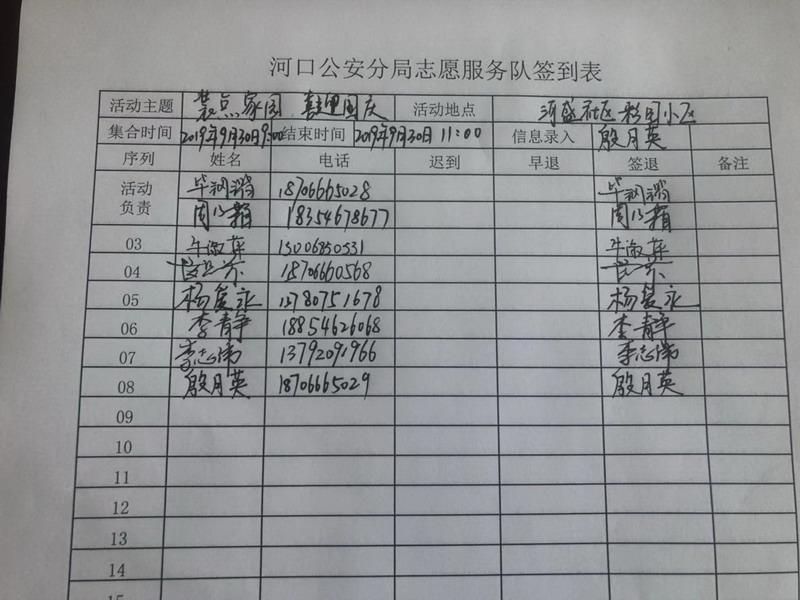 河口公安分局志愿服务队签到表
活动主题 装点家园 喜迎国庆 活动地点 河盛社区 彩园小区
集合时间 2019年9月30日9:00 结束时间 2019年9月30日 11:00 信息录入 殷月英
序列 姓名 电话 迟到 早退 签退 备注
活动负责 18706665028
18354678677
03 牛淑萍 15006850531 牛淑萍
04 18706660568
05 杨复永 13780751678 杨复永
06 李静 18854626068 李静
07 李志伟 13792091966 李志伟
08 殷月英 18706665029 殷月英
09
10
11
12
13
14
15